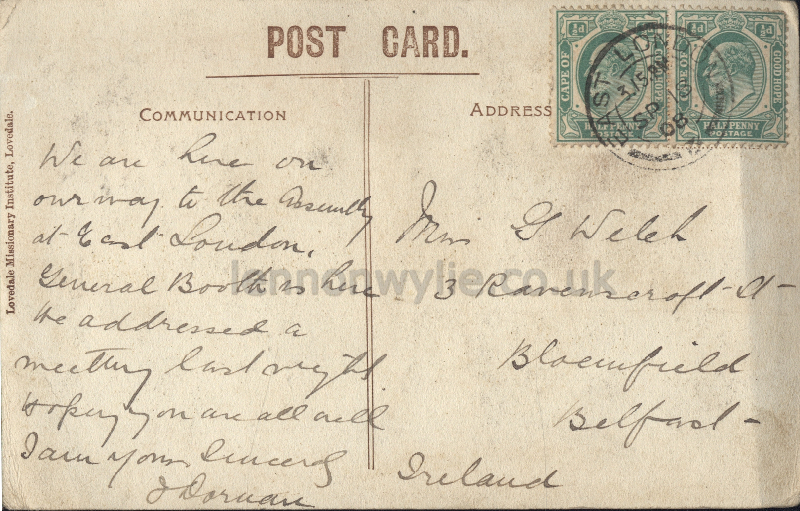 POST CARD.
COMMUNICATION
ADDRESS
Lovedale Missionary Institute, Lovedale.
½d ½d
CAPE OF GOOD HOPE
HALFPENNY
POSTAGE
½d ½d
CAPE OF GOOD HOPE
HALFPENNY
POSTAGE
EAST LONDON
SP 16
08
We are here on
our way to the Assembly
at East London.
General Booth is here
He addressed a
meeting last night.
Hoping you are all well
I am yours Sincerely
J Dornan
G Welch
3 Ravenscroft St
Bloomfield
Belfast
Ireland
lennonwylie.co.uk